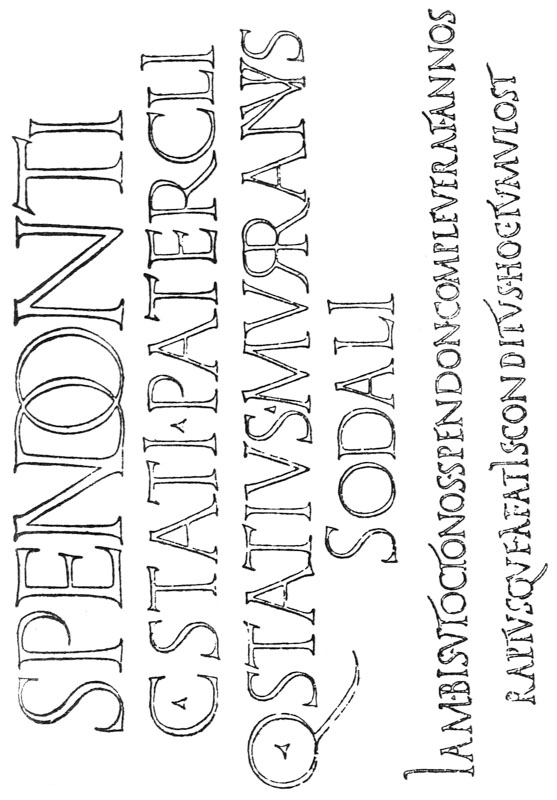 SPENDONTI
C·STATI·PATERCLI
Q·STATIVS·MVRRANVS
SODALI
IAM·BIS·VT·OCTONOS·SPENDON·COMPLEVERAT·ANNOS
RAPTVSQVE·A·FATIS·CONDITVS·HOC·TVMVLOST